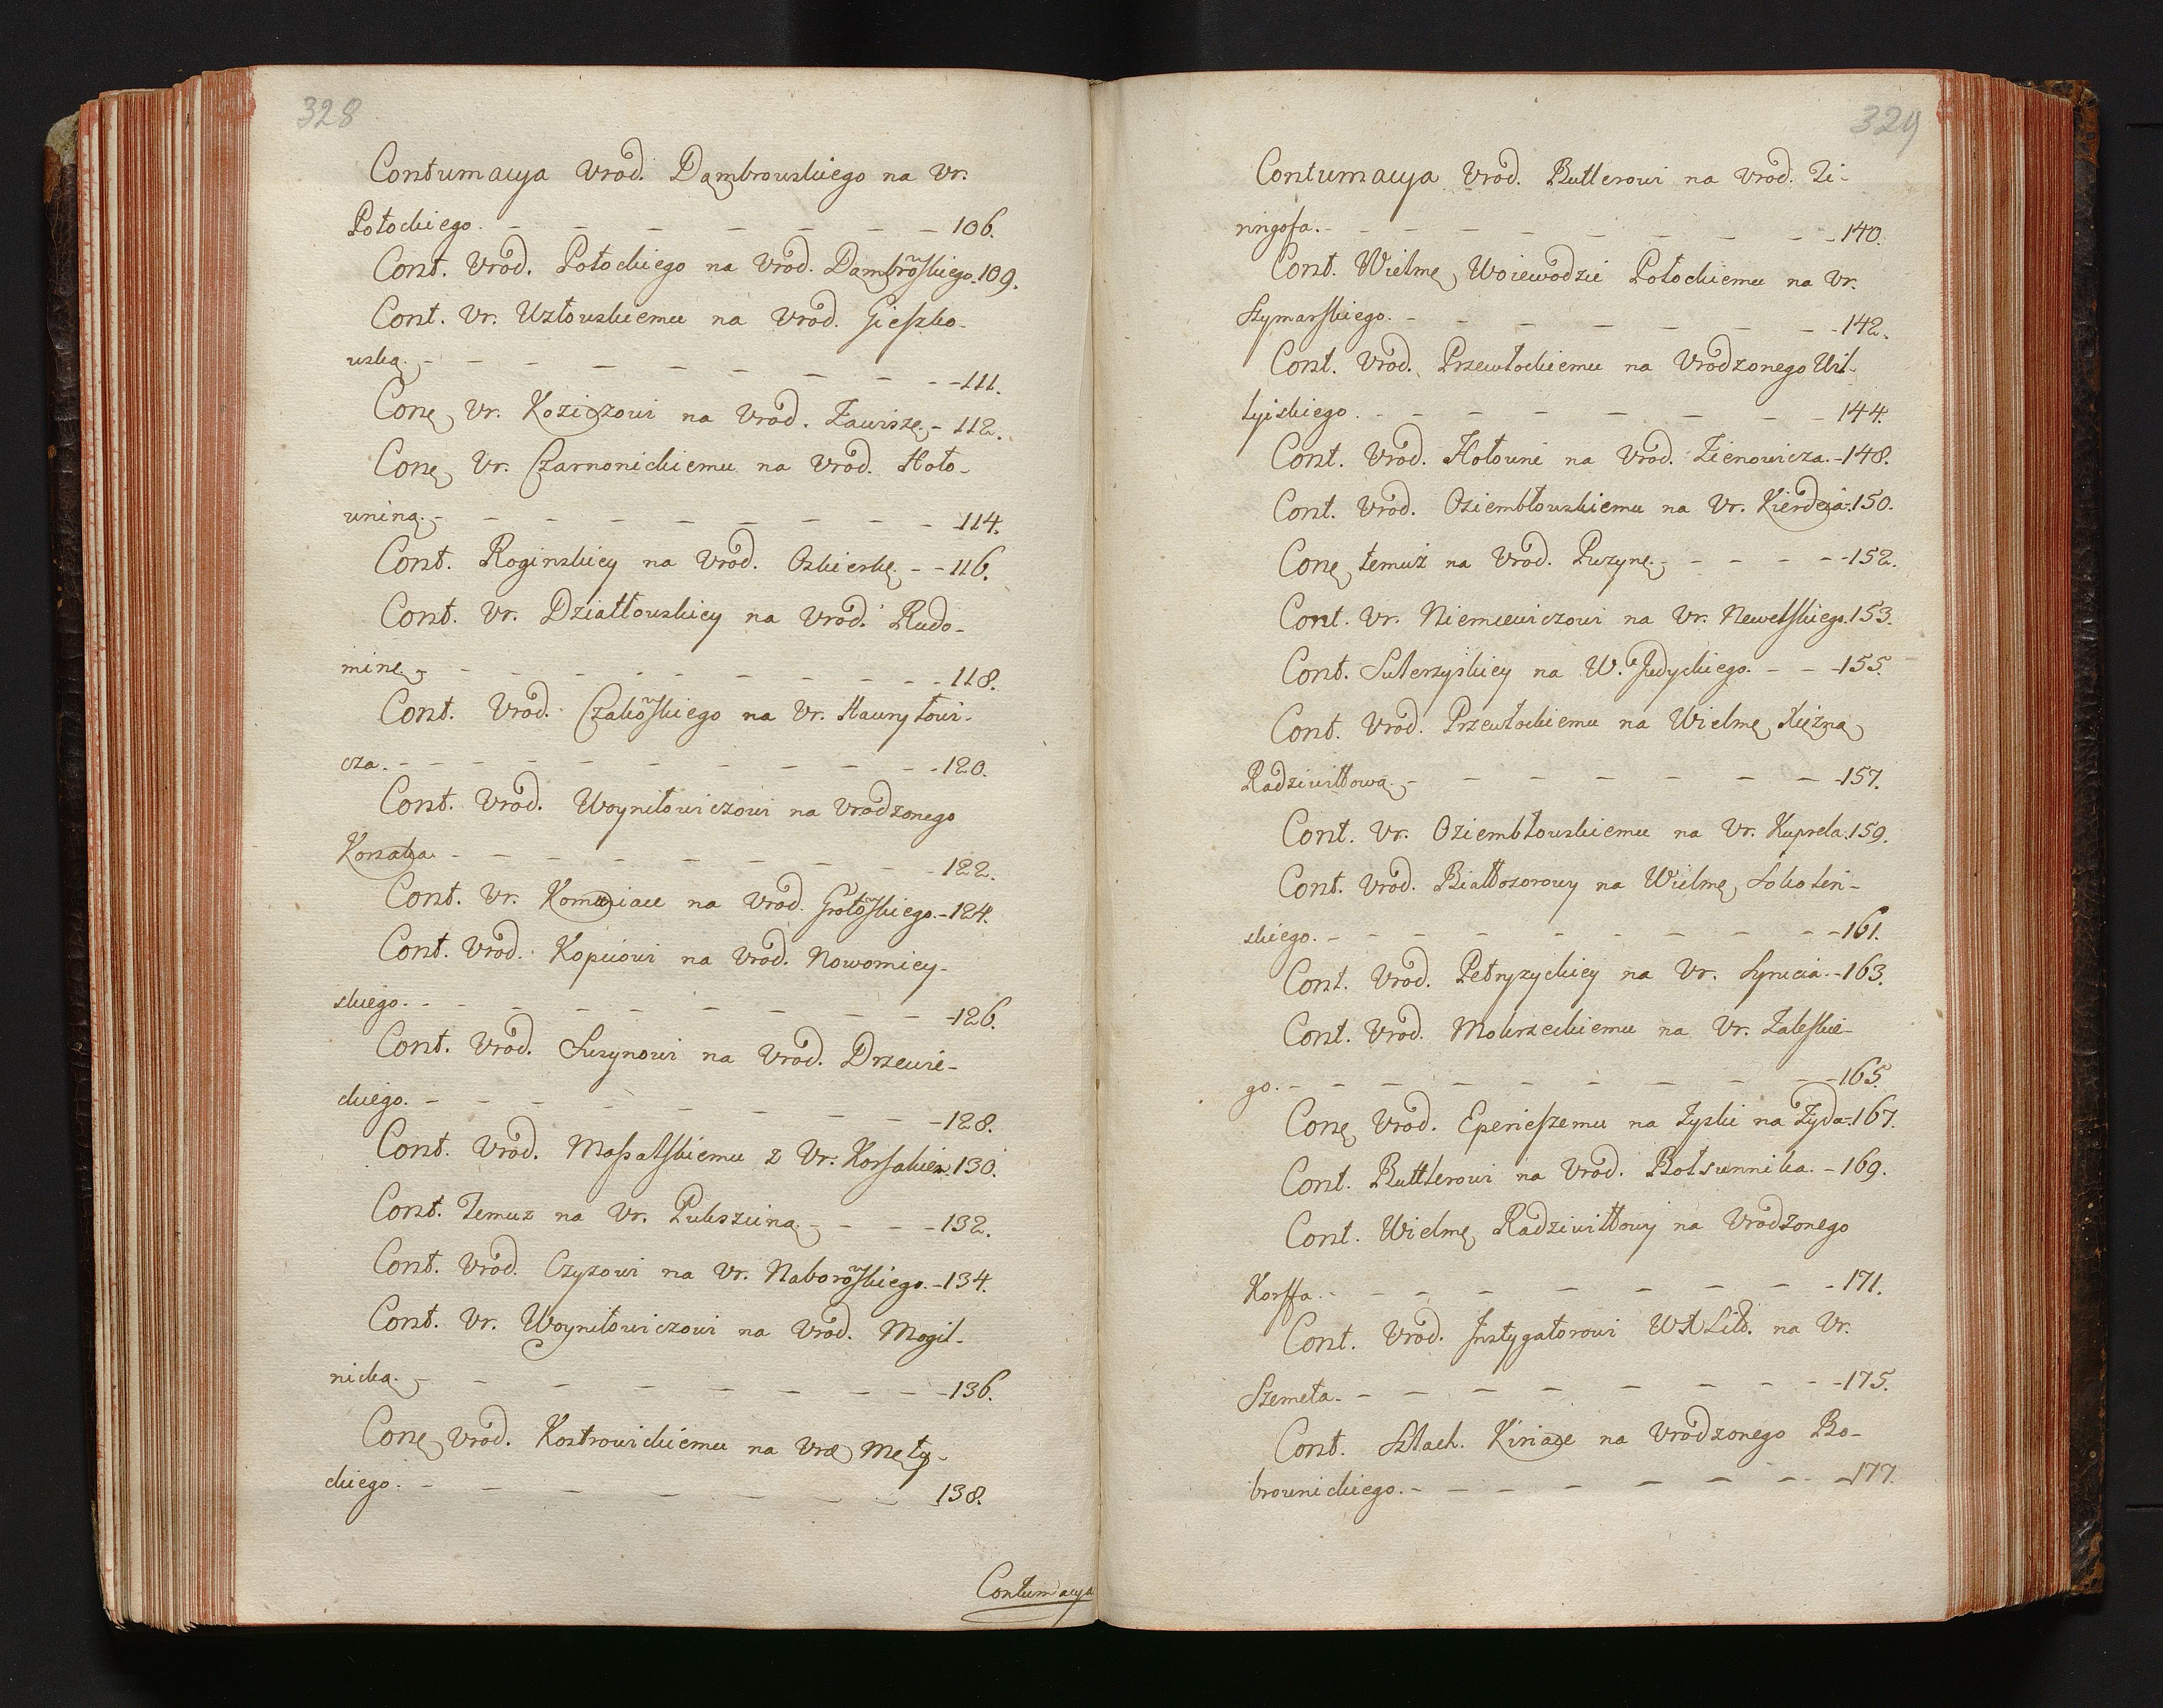 328
Contumacya Urod. Dąmbrowskiego na Ur.
Potockiego. - - - - - - - - 106.
Cont. Urod. Potockiego na Urod. Dąmbrowskiego. 109.
Cont. Ur. Uzłowskiemu na Urod. Gieszko-
wską. - - - - - - - - - 111.
Conę Ur. Koziczowi na Urod. Zawiszę. - 112.
Conę Ur. Czarnonickiemu na Urod. Hoło-
wniną. - - - - - - - - - 114.
Cont. Roginskiey na Urod. Oskierkę. - - 116.
Cont. Ur. Działłowskiey na Urod. Rudo-
minę - - - - - - - - - 118.
Cont. Urod. Czakowskiego na Ur. Hawryłowi-
cza. - - - - - - - - - - 120.
Cont. Urod. Woyniłowiczowi na Urodzonego
Korsaka. - - - - - - - - - 122.
Cont. Ur. Komuiace na Urod. Grotowskiego. - 124.
Cont. Urod. Kopciowi na Urod. Nowomiey-
skiego. - - - - - - - - - 126.
Cont. Urod. Suzynowi na Urod. Drzewie-
ckiego. - - - - - - - - - 128.
Cont. Urod. Massalskiemu z Ur. Korsakiem. 130.
Cont. Temuz na Ur. Pukszciną. - - - - 132.
Cont. Urod. Czyzowi na Ur. Naborowskiego. - 134.
Cont. Ur. Woyniłowiczowi na Urod. Mogil-
nicką. - - - - - - - - - 136.
Conę Urod. Kostrowickiemu na Uro Męty-
ckiego. - - - - - - - - 138.
Contumacya
329
Contumacya Urod. Butlerowi na Urod. Zi-
ningofa. - - - - - - - - - 140.
Cont. Wielmę Woiewodzie Połockiemu na Ur.
Szymarskiego. - - - - - - - - 142.
Cont. Urod. Przewłockiemu na Urodzonego Wil-
tyiskiego. - - - - - - - - 144.
Cont. Urod. Hołowni na Urod. Zienowicza. - 148.
Cont. Urod. Oziembłowskiemu na Ur. Kierdeia. 150.
Conę temuż na Urod. Puzynę. - - - - - 152.
Cont. Ur. Niemcewiczowi na Ur. Newelskiego. 153.
Cont. Suterzyskiey na W. Judyckiego. - - - 155.
Cont. Urod. Przewłockiemu na Wielmę Xiężną
Radziwiłłową. - - - - - - - - 157.
Cont. Ur. Oziembłowskiemu na Ur. Kuprela. 159.
Cont. Urod. Białłozorowy na Wielmę Sokoleń-
skiego. - - - - - - - - - 161.
Cont. Urod. Petryzyckiey na Ur. Syrucia. - 163.
Cont. Urod. Mokrzeckiemu na Ur. Zaleskie-
go. - - - - - - - - - - 165.
Conę Urod. Eperieszemu na Zyski na Żyda. 167.
Cont. Buttlerowi na Urod. Bołsunnika. - 169.
Cont. Wielmę Radziwiłłowy na Urodzonego
Korffa. - - - - - - - - - 171.
Cont. Urod. Instygatorowi WXLitt. na Ur.
Szemeta. - - - - - - - - - 175.
Cont. Szlach. Kiriace na Urodzonego Bo-
brownickiego. - - - - - - - - 177.